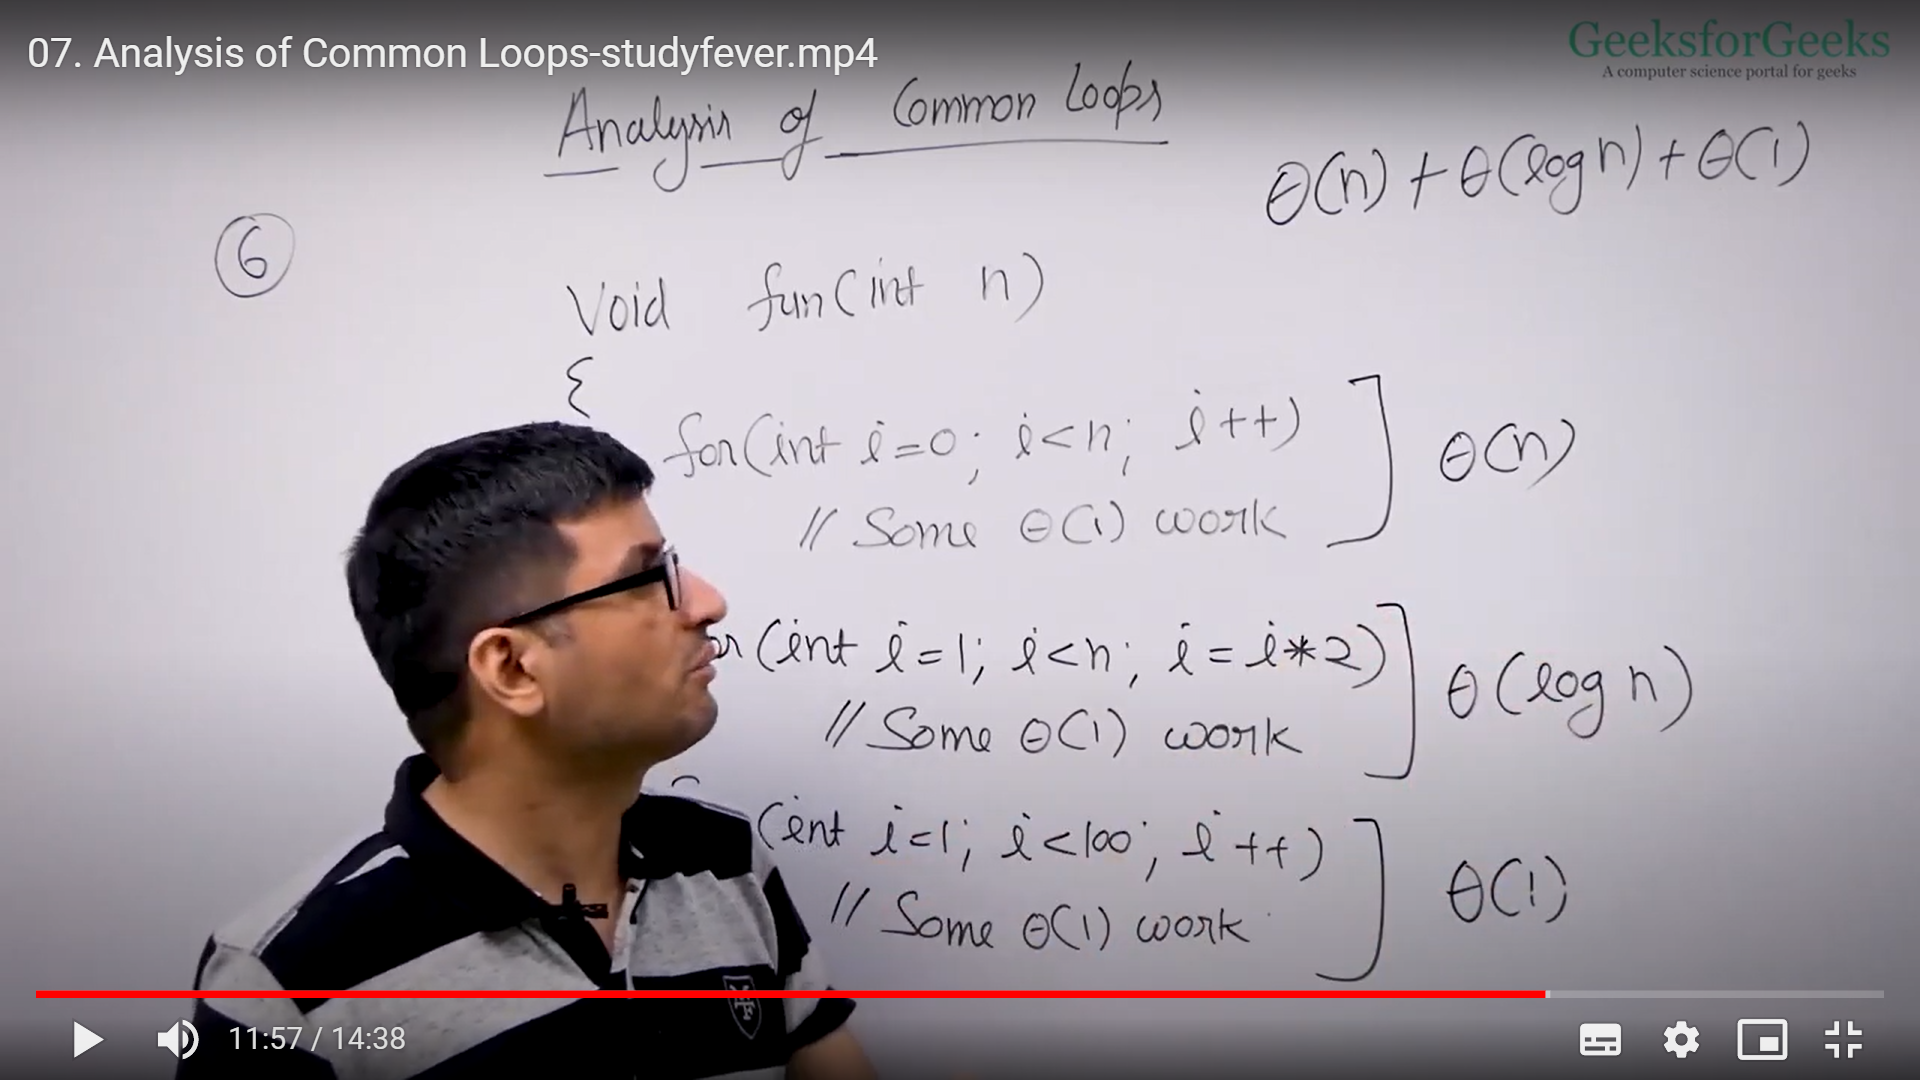 07. Analysis of Common Loops-studyfever.mp4
GeeksforGeeks
A computer science portal for geeks
Analysis of Common Loops
θ(n) + θ(log n) + θ(1)
6
Void fun(int n)
{
for(int i=0; i<n; i++)
θ(n)
// Some θ(1) work
(int i=1; i<n; i=i*2)
θ(log n)
// Some θ(1) work
(int i=1; i<100; i++)
θ(1)
// Some θ(1) work
11:57 / 14:38